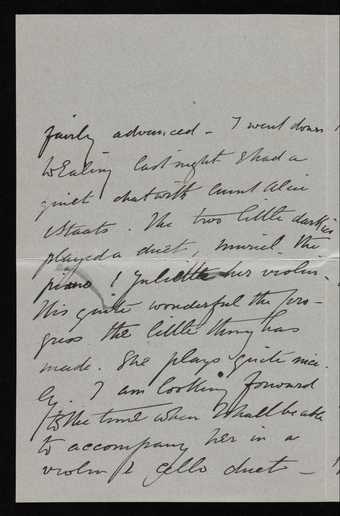 fairly advanced - I went down
to Ealing last night & had a
quiet chat with Aunt Alice
Staats. The two little darkies
played a duet, Muriel the
piano & Juliette her violin.
Tis quite wonderful the pro-
gress the little thing has
made. She plays quite nice-
ly. I am looking forward
to the time when I shall be able
to accompany her in a
violin & 'cello duet -